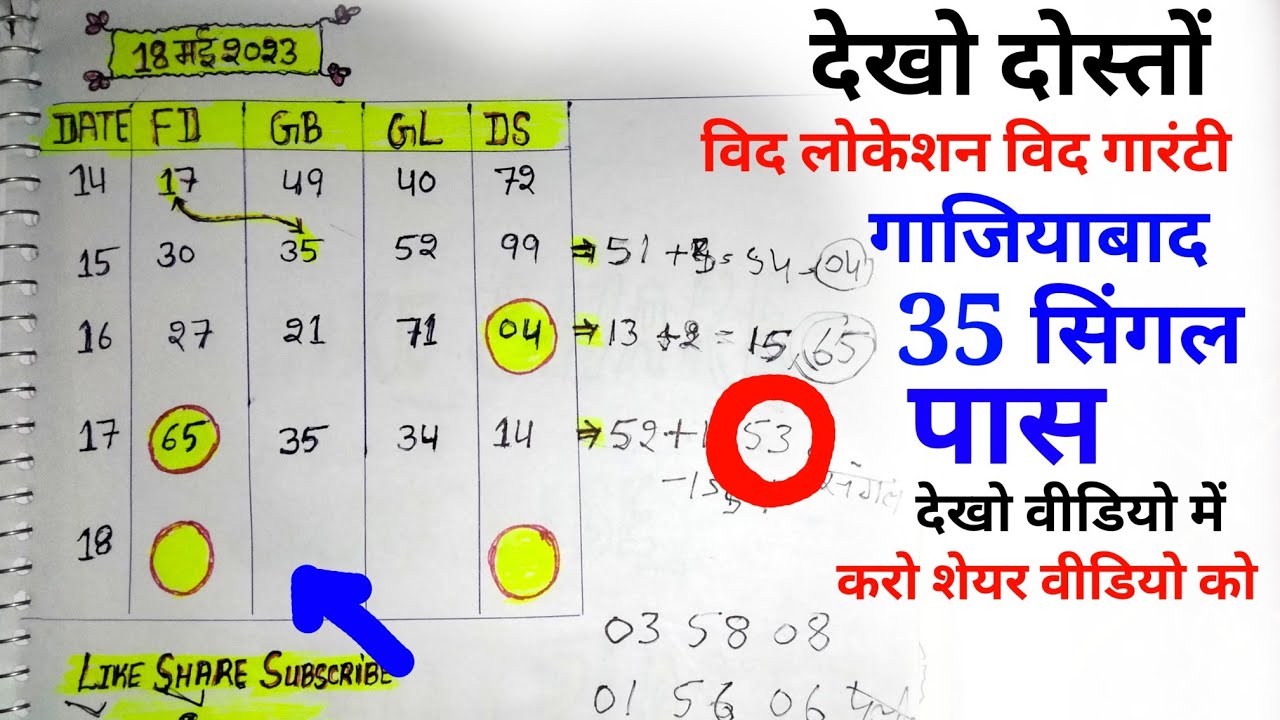 18 मई 2023
देखो दोस्तों
विद लोकेशन विद गारंटी
गाजियाबाद
35 सिंगल
पास
देखो वीडियो में
करो शेयर वीडियो को
DATE FD GB GL DS
14 17 49 40 72
15 30 35 52 99 ⇒ 51 + = 54 - 04
16 27 21 71 04 ⇒ 13 +2 = 15, 65
17 65 35 34 14 ⇒ 52+1 53
सिंगल
18
03 58 08
01 56 06
LIKE SHARE SUBSCRIBE